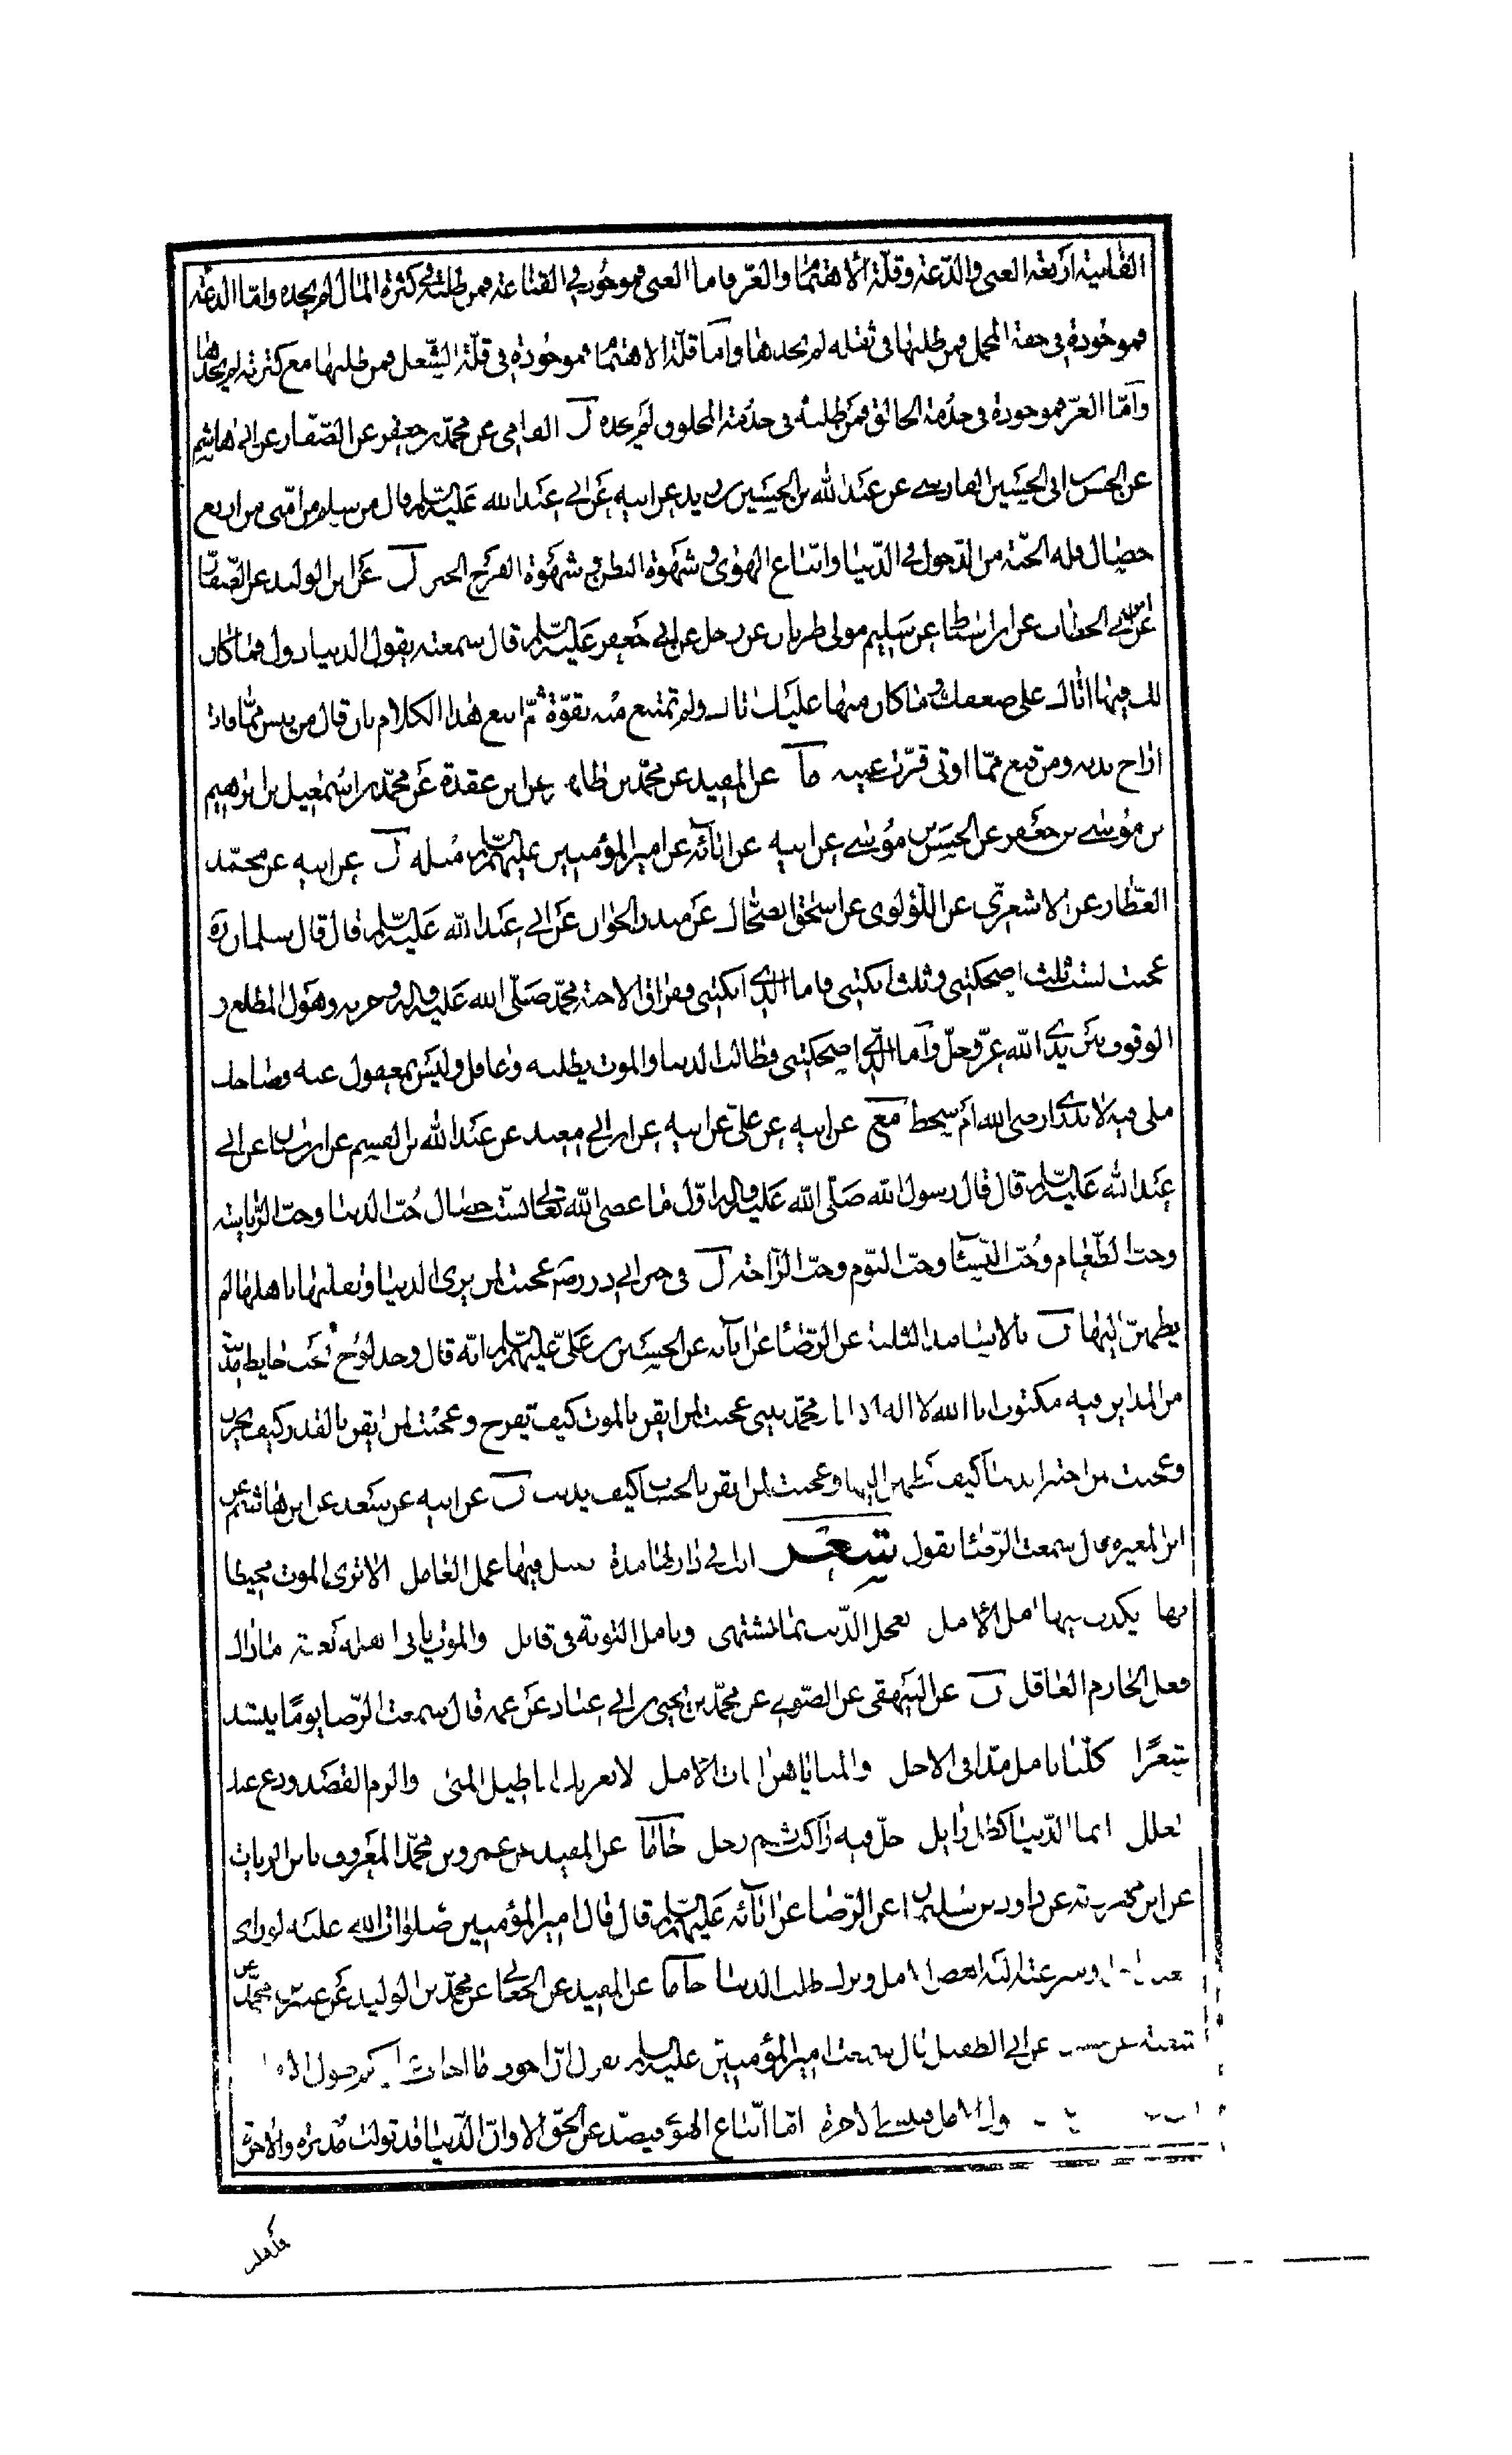 الفانية اربعة الغنى والدعة وقلة الاهتمام والعز فاما الغنى فموجود في القناعة فمن طلبه في كثرة المال لم يجده واما الدعة
فموجودة في خفة المحمل فمن طلبها في ثقله لم يجدها واما قلة الاهتمام فموجودة في قلة الشغل فمن طلبها مع كثرته لم يجدها
وامّا العزّ فموجودة في خدمة الخالق فمن طلبه في خدمة المخلوق لم يجده ل الفامي عن محمّد بن جعفر عن الصّفار عن ابي هاشم
عن الحسن ابي الحسين الفارسي عن عبد الله بن الحسين بن يزيد عن ابيه عن ابي عبد الله عليه السّلم قال من سلم من امّتى من اربع
خصال فله الجنّة من الدّخول في الدّنيا واتباع الهوى وشهوة البطن وشهوة الفرج الخبر ل عن ابن الوليد عن الصّفار
عن ابن ابي الخطاب عن ابن اسباط عن سليم مولى طربال عن رجل عن ابي جعفر عليه السّلم قال سمعته يقول الدنيا دول فما كان
لك فيها اتاك على ضعفك وما كان منها عليك اتاك ولم تمتنع منه بقوّة ثمّ اتبع هذا الكلام بان قال من يئس ممّا فات
اراح بدنه ومن قنع ممّا اوتى قرّت عينه ما عن المفيد عن محمّد بن طاهر عن ابن عقدة عن محمّد بن اسمعيل بن ابرهيم
بن موسى بن جعفر عن الحسن بن موسى عن ابيه عن ابائه عن امير المؤمنين عليهم السّلم مثله ل عن ابيه عن محمّد
العطّار عن الاشعري عن اللؤلوى عن اسحق الضحّاك عن منذر الجوان عن ابي عبد الله عليه السّلم قال قال سلمان ره
عجبت لست ثلث اضحكتنى وثلث ابكتنى فاما الذي ابكتنى ففراق الاحبة محمّد صلّى الله عليه واله وحزبه وهول المطلع و
الوقوف بين يدي الله عزّ وجلّ وامّا الّتي اضحكتنى فطالب الدنيا والموت يطلبه وغافل وليس بمغفول عنه وضاحك
ملى فيه لا يدري ارضى الله ام سخط مع عن ابيه عن علىّ عن ابيه عن ابن ابي عمير عن عبد الله بن القسم عن ابن سنان عن ابي
عبد الله عليه السّلم قال قال رسول الله صلّى الله عليه واله اوّل ما عصى الله تعالى بستّ خصال حبّ الدنيا وحبّ الرّياسة
وحبّ الطّعام وحبّ النّساء وحبّ النّوم وحبّ الرّاحة ل في خبر ابي ذر رض عجبت لمن يرى الدنيا وتقلّبها باهلها لم
يطمئنّ اليها ن بالاسانيد الثلثة عن الرّضا عن ابائه عن الحسين بن علىّ عليهم السّلم انّه قال وجد لوح تحت حايط مدينة
من المداين فيه مكتوب انا الله لا اله الا انا ومحمّد نبيى عجبت لمن ايقن بالموت كيف يفرح وعجبت لمن ايقن بالقدر كيف يحزن
وعجبت من اختبر الدنيا كيف يطمئن اليها وعجبت لمن ايقن بالحساب كيف يذنب ن عن ابيه عن سعد عن ابن هاشم عن
ابن المغيره قال سمعت الرّضا يقول شعر انك في دار لها مدة يقبل فيها عمل العامل الا ترى الموت محيطا
بها يكذب فيها امل الآمل تعجل الذّنب بما تشتهى وتامل التوبة في قابل والموت ياتى اهله بغتة ما ذاك
فعل الحازم العاقل ن عن البيهقى عن الصّولي عن محمّد بن يحيى بن ابي عباد عن عمه قال سمعت الرّضا يومًا ينشد
شعرًا كلّنا يامل مدّا فى الاجل والمنايا هن افات الامل لا تغرنك اباطيل المنى والزم القصد ودع عنك
العلل انما الدّنيا كظلّ زايل حلّ فيه راكب ثم رحل ما عن المفيد عن عمرو بن محمّد المعروف بابن الزيات
عن ابن مهرويه عن داود بن سليمن عن الرّضا عن ابائه عليهم السّلم قال قال امير المؤمنين صلوات الله عليه لو راى
العبد اجله وسرعته اليه ابغض الامل وترك طلب الدنيا جا ما عن المفيد عن الجعابي عن محمّد بن الوليد عن عنبر بن محمّد عن
شعبة عن عن ابي الطفيل قال سمعت امير المؤمنين عليه السلم يقول انّ اخوف ما اخاف عليكم طول الامل
واما طول الامل فينسى الاخرة امّا اتّباع الهوى فيصدّ عن الحقّ الا وانّ الدّنيا قد تولت مدبرة والاخرة
قد اقبلت